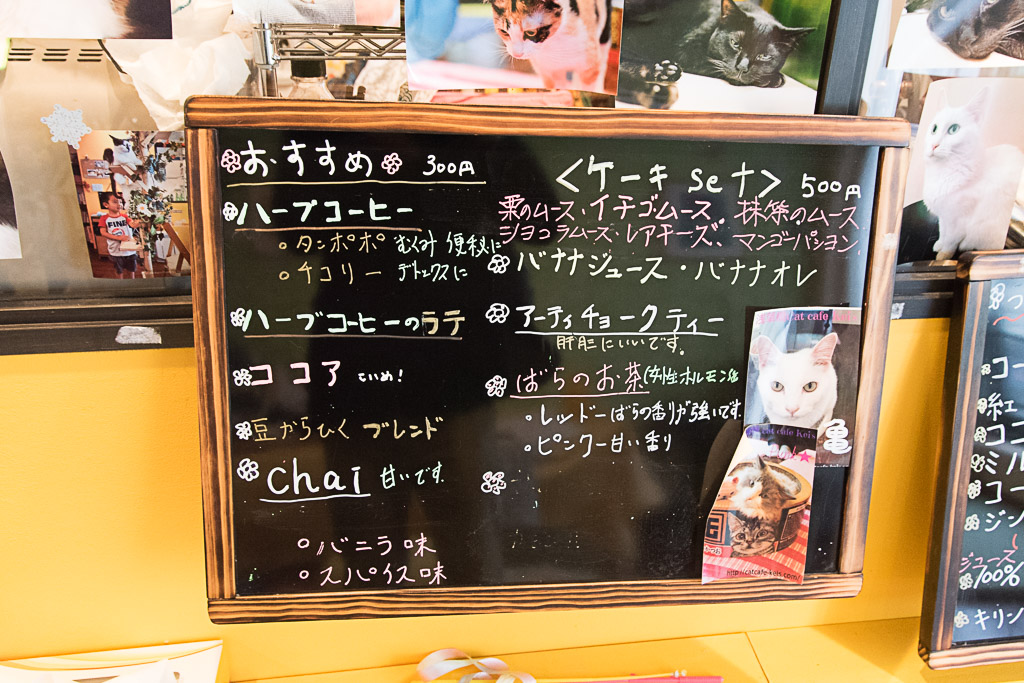 おすすめ 300円
ハーブコーヒー
・タンポポ むくみ 便秘に
・チコリー デトックスに
ハーブコーヒーのラテ
ココア こいめ!
豆からひく ブレンド
chai 甘いです
・バニラ味
・スパイス味
<ケーキ set> 500円
栗のムース・イチゴムース、抹茶のムース
ショコラムース・レアチーズ、マンゴーパション、
バナナジュース・バナナオレ
アーティチョークティー
肝臓にいいです。
ばらのお茶
・レッドーばらの香りが強いです
・ピンクー甘い香り
cat cafe keis
亀
cat cafe keis
http://catcafe-keis.com/
FINE
コー
紅
ココ
ミル
コー
ジン
ジュース
100%
キリン